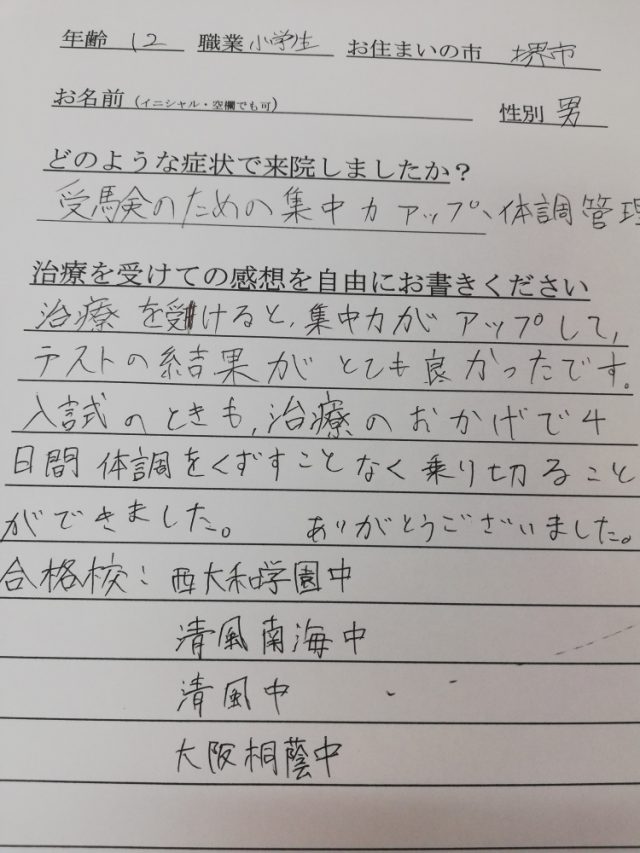 年齢 12 職業 小学生 お住まいの市 堺市
お名前（イニシャル・空欄でも可） 性別 男
どのような症状で来院しましたか？
受験のための集中力アップ、体調管理
治療を受けての感想を自由にお書きください
治療を受けると、集中力がアップして、
テストの結果がとても良かったです。
入試のときも、治療のおかげで4
日間体調をくずすことなく乗り切ること
ができました。 ありがとうございました。
合格校：西大和学園中
清風南海中
清風中
大阪桐蔭中